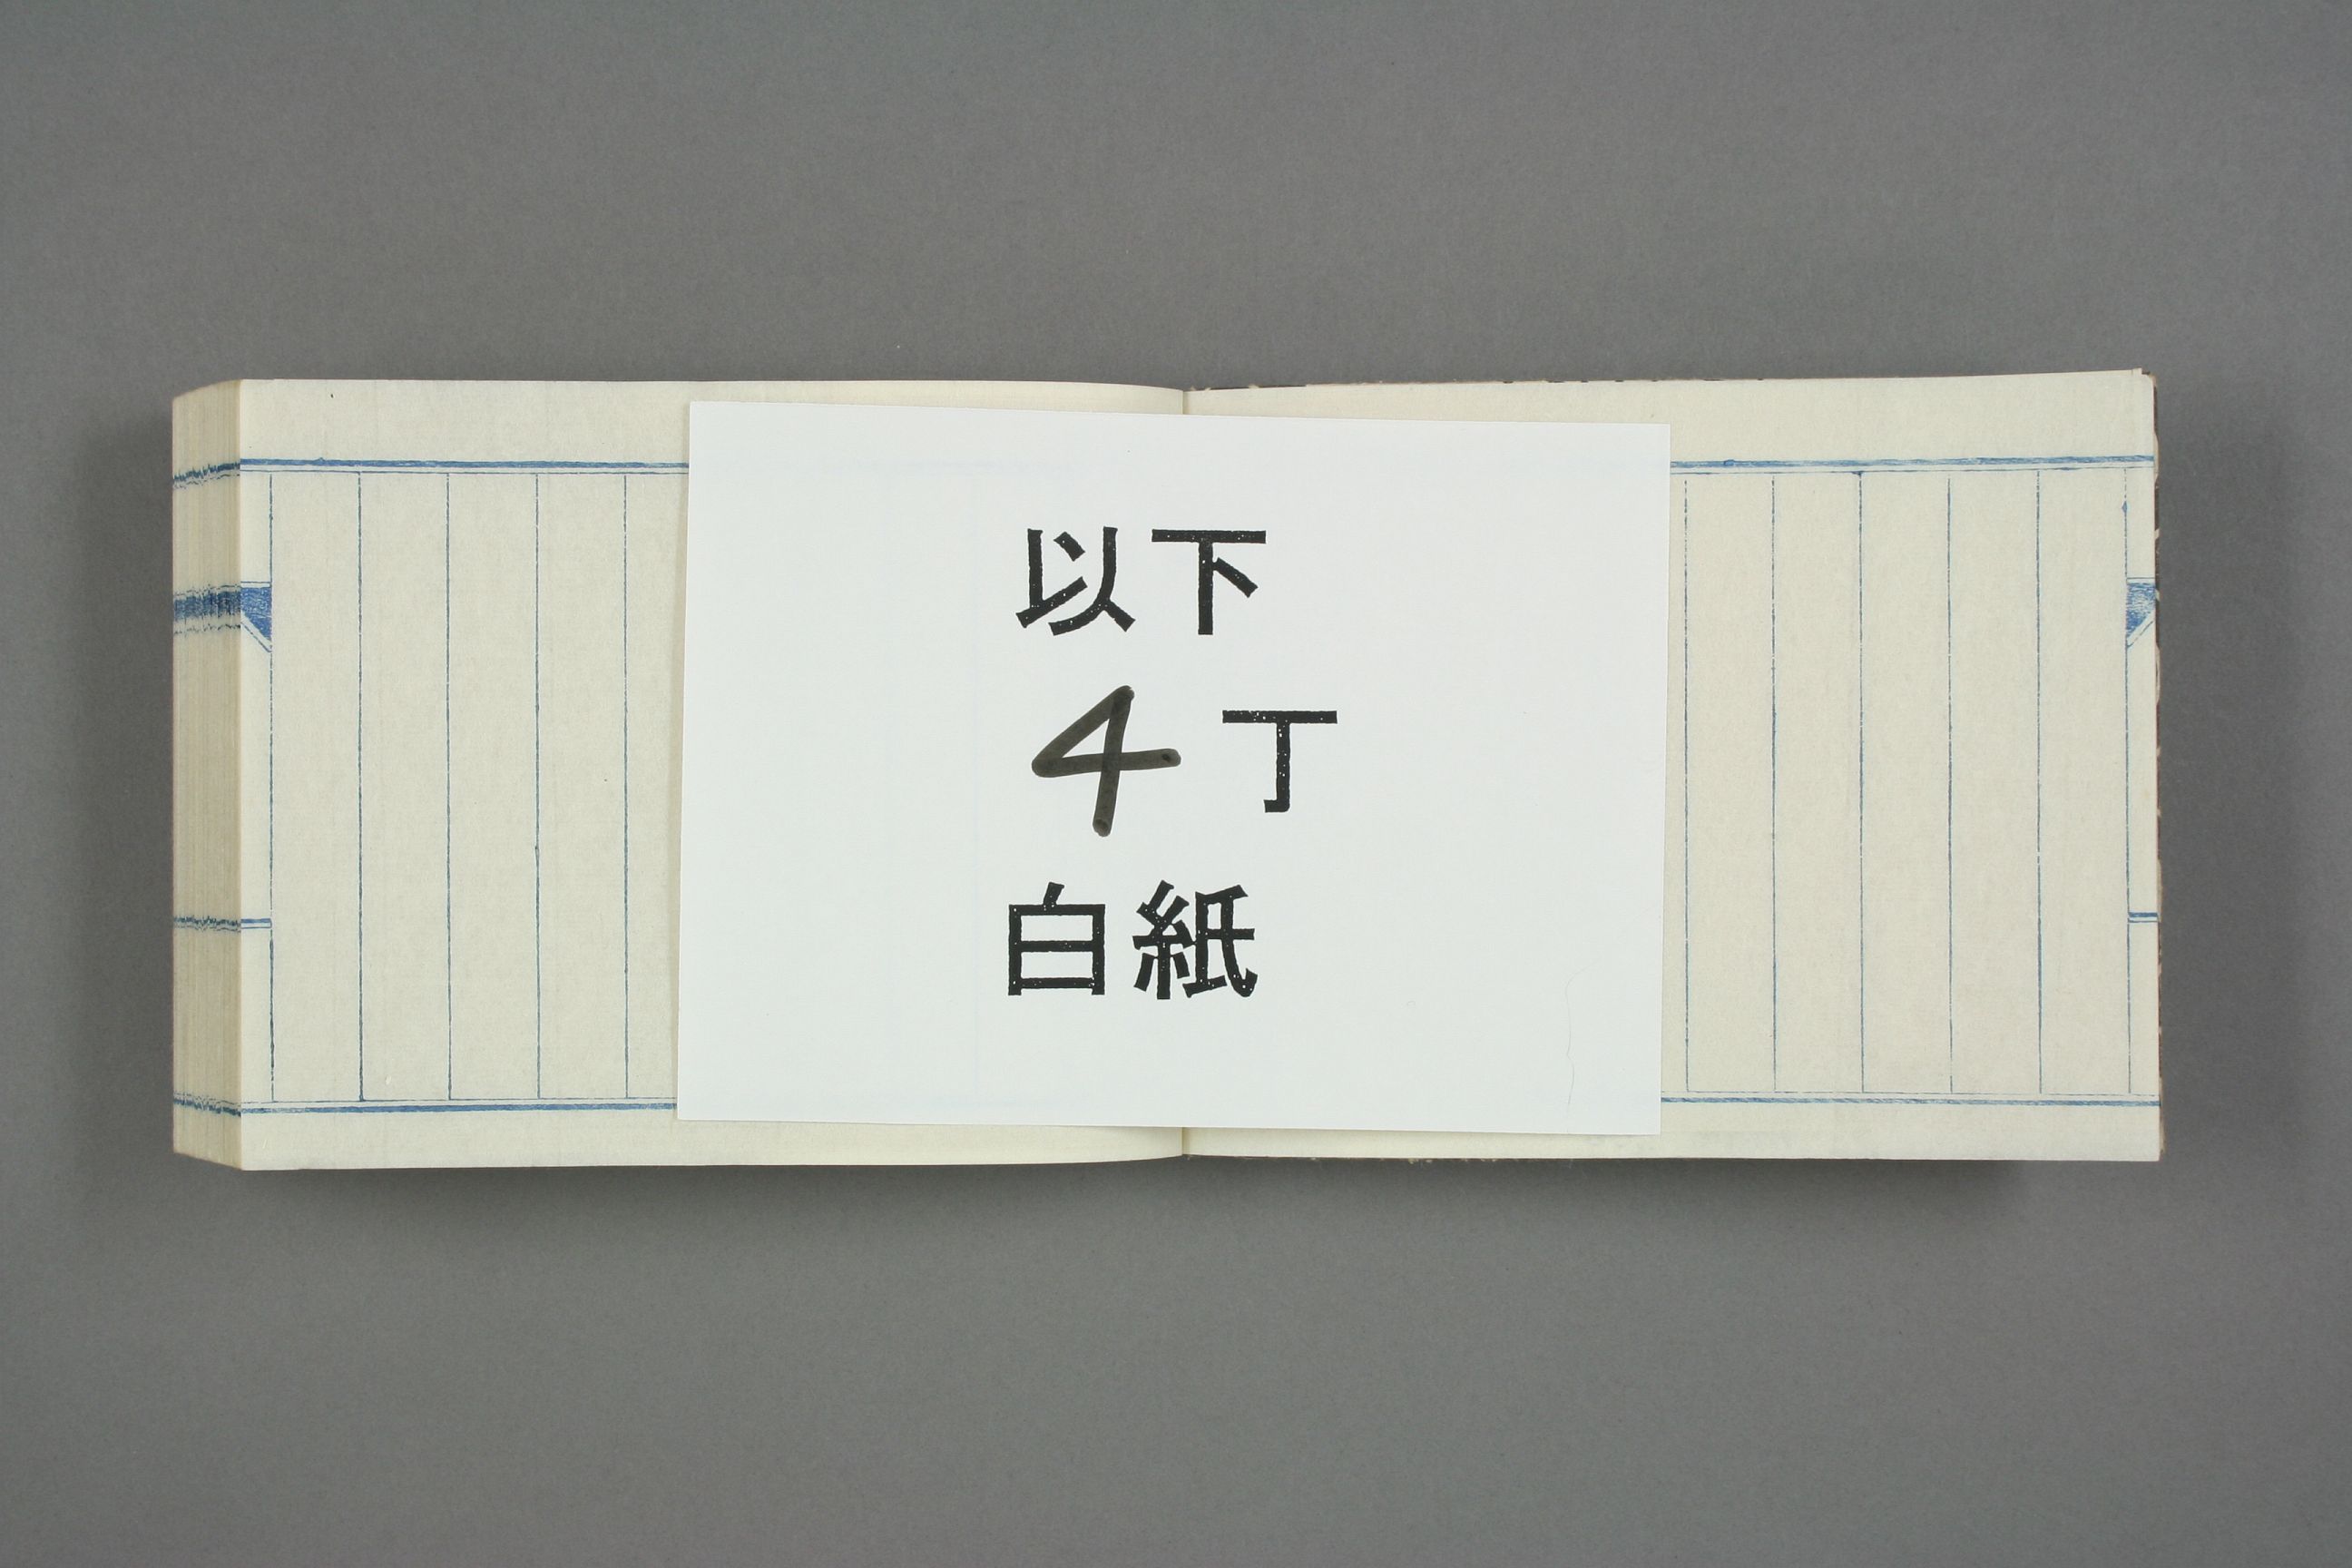 以下
4丁
白紙